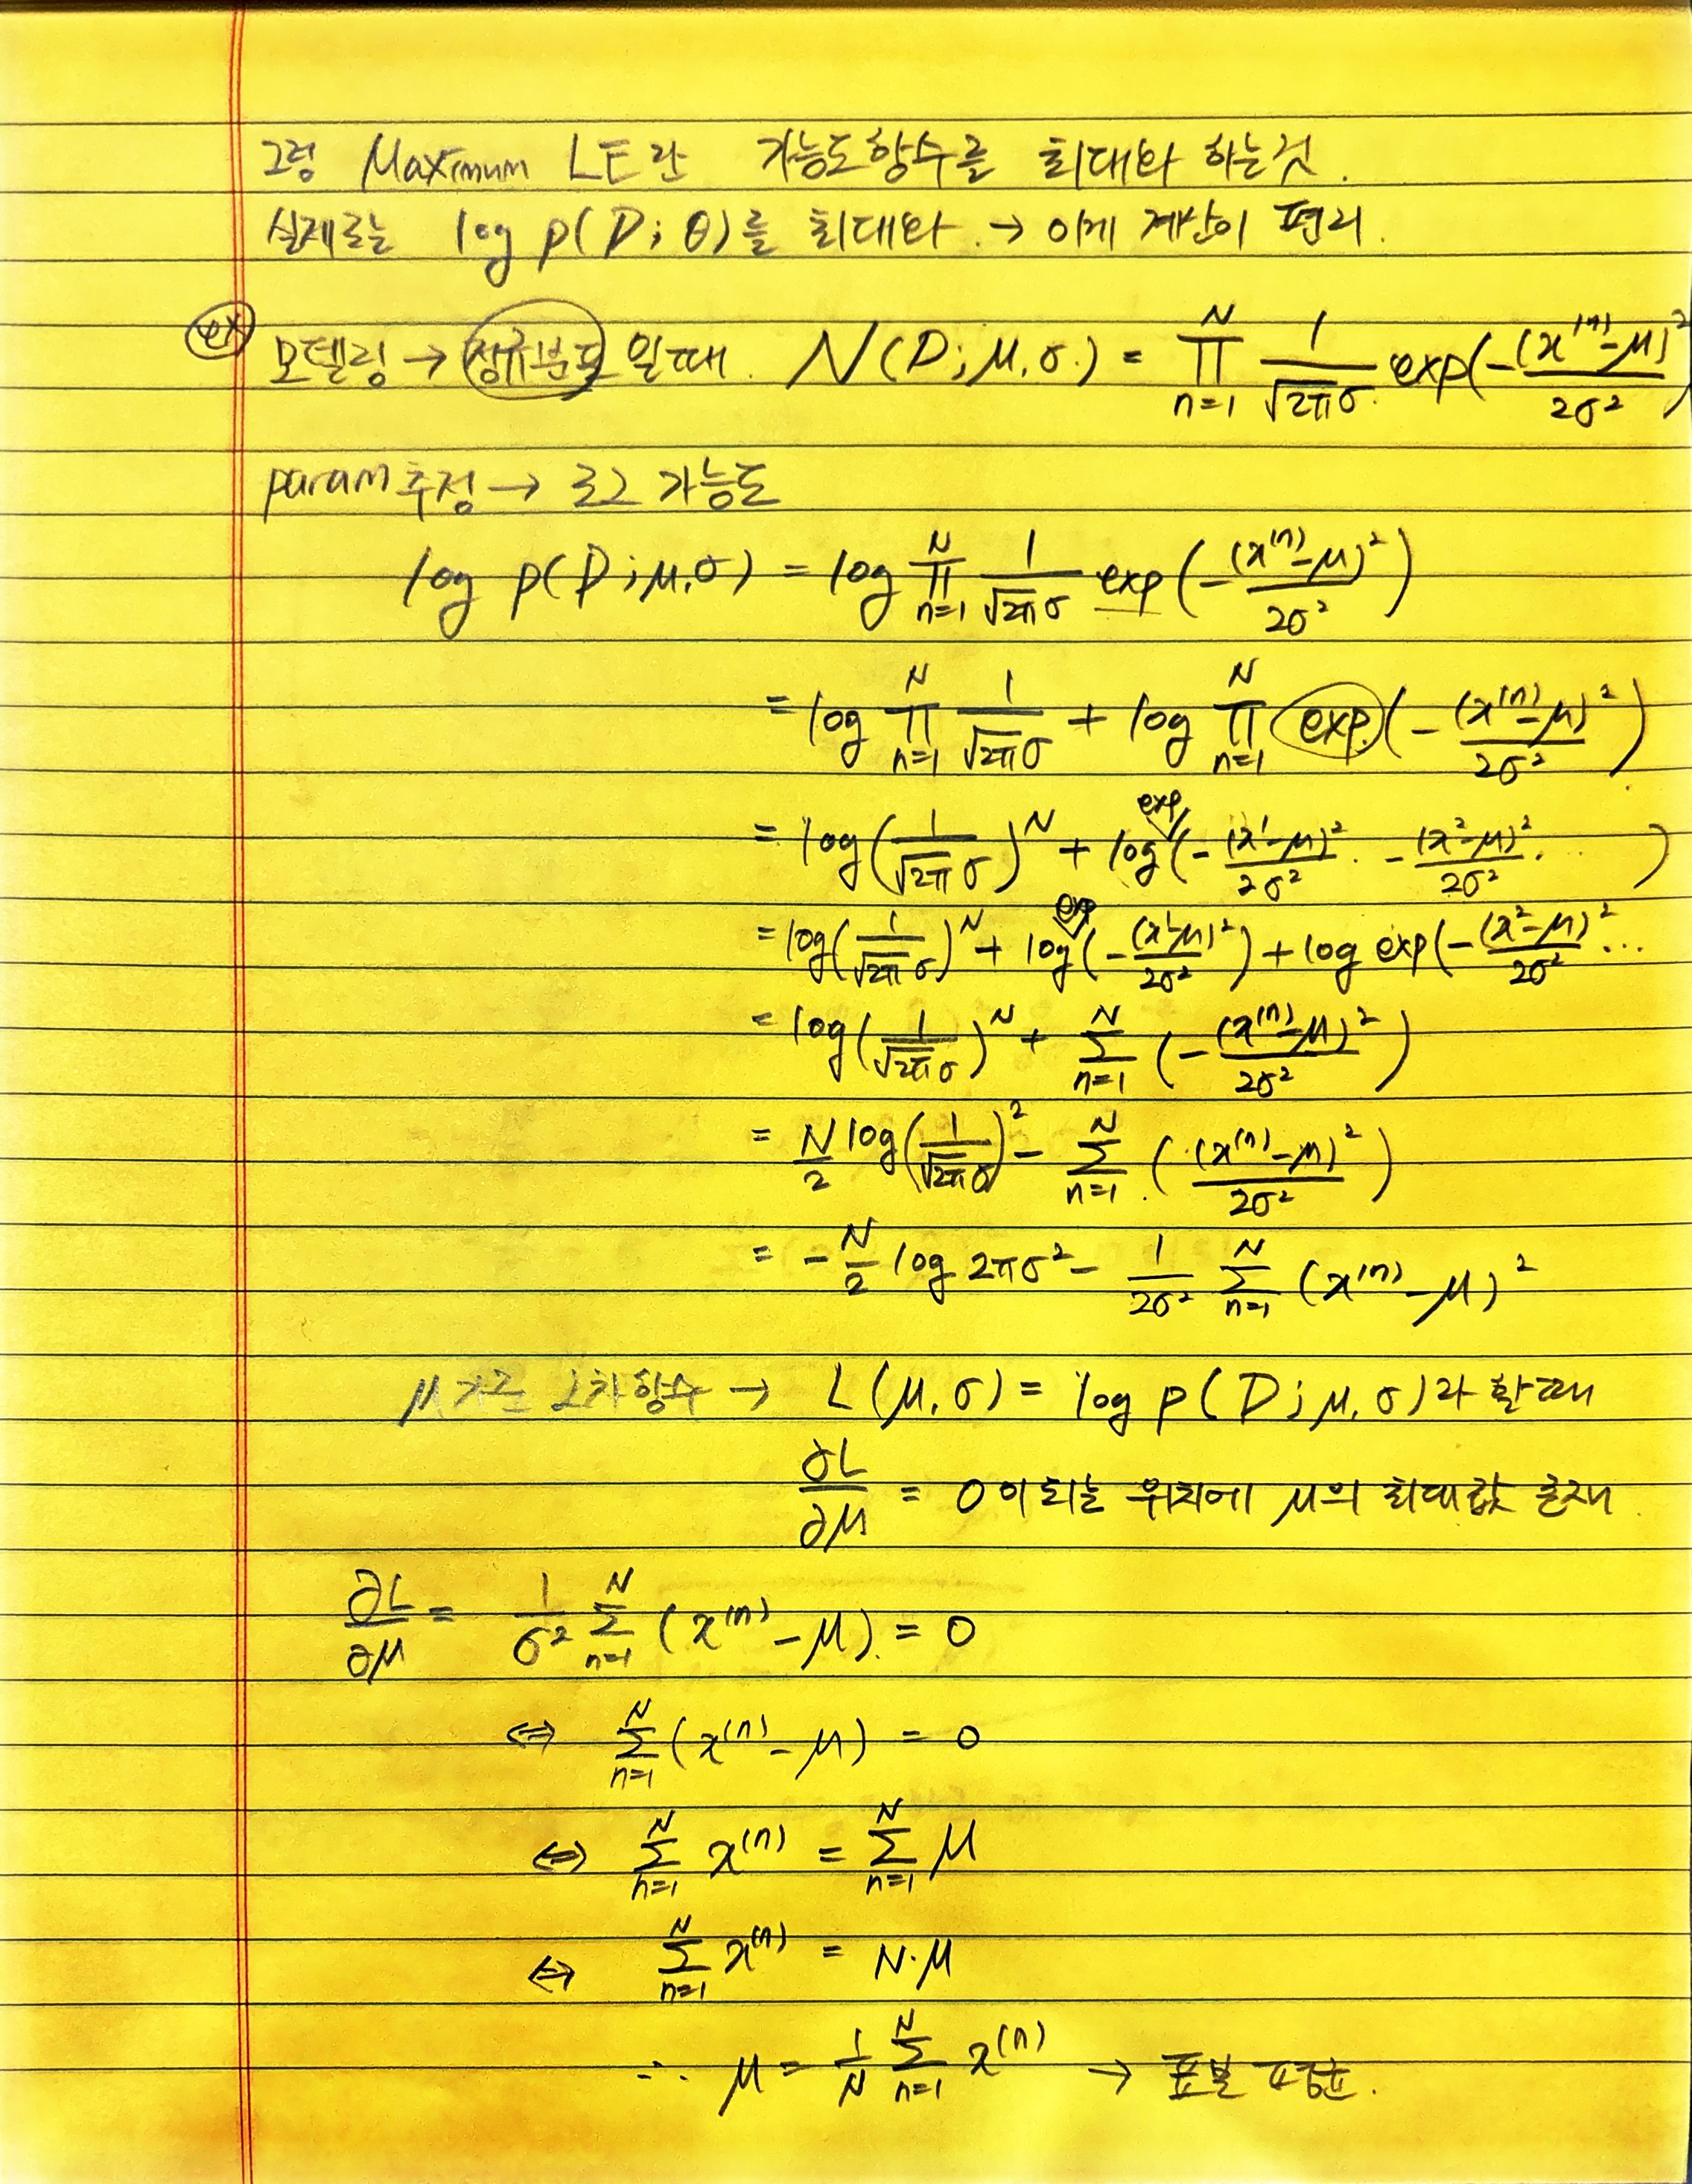 그럼 Maximum LE란 가능도함수를 최대화 하는것.
실제로는 log p(D; θ)를 최대화. → 이게 계산이 편리.
ex 모델링 → 정규분포 일때. N(D; μ, σ) = ∏_{n=1}^{N} 1/(√2π σ) exp(-(x^(n)-μ)²/2σ²)
param 추정 → 로그 가능도
log p(D; μ, σ) = log ∏_{n=1}^{N} 1/(√2π σ) exp(-(x^(n)-μ)²/2σ²)
= log ∏_{n=1}^{N} 1/(√2π σ) + log ∏_{n=1}^{N} exp(-(x^(n)-μ)²/2σ²)
= log(1/(√2π σ))^N + log exp(-(x¹-μ)²/2σ² · -(x²-μ)²/2σ² · ... )
= log(1/(√2π σ))^N + log exp(-(x¹-μ)²/2σ²) + log exp(-(x²-μ)²/2σ² ...
= log(1/(√2π σ))^N + ∑_{n=1}^{N} (-(x^(n)-μ)²/2σ²)
= N/2 log(1/(√2π σ))² - ∑_{n=1}^{N} ((x^(n)-μ)²/2σ²)
= -N/2 log 2πσ² - 1/2σ² ∑_{n=1}^{N} (x^(n)-μ)²
μ 기준 2차함수 → L(μ, σ) = log p(D; μ, σ)라 할때
∂L/∂μ = 0이 되는 위치에 μ의 최대값 존재
∂L/∂μ = 1/σ² ∑_{n=1}^{N} (x^(n)-μ) = 0
⇔ ∑_{n=1}^{N} (x^(n)-μ) = 0
⇔ ∑_{n=1}^{N} x^(n) = ∑_{n=1}^{N} μ
⇔ ∑_{n=1}^{N} x^(n) = N·μ
∴ μ = 1/N ∑_{n=1}^{N} x^(n) → 표본 평균.